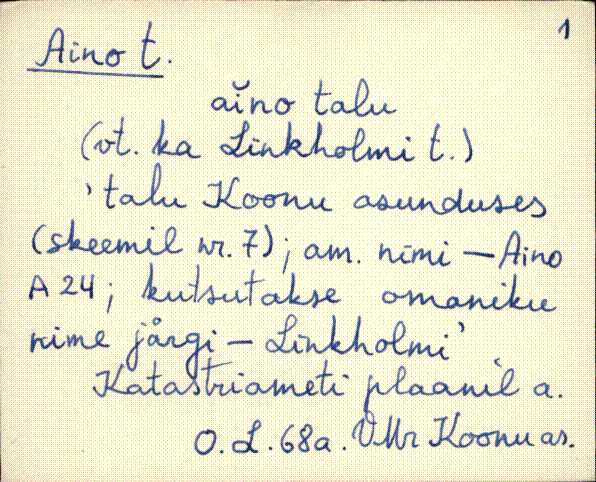 1
Aino t.
aĭno talu
(vt. ka Linkholmi t.)
'talu Koonu asunduses
(skeemil nr. 7); am. nimi – Aino
A 24; kutsutakse omaniku
nime järgi – Linkholmi'
Katastriameti plaanil a.
O. L. 68a. VMr Koonu as.